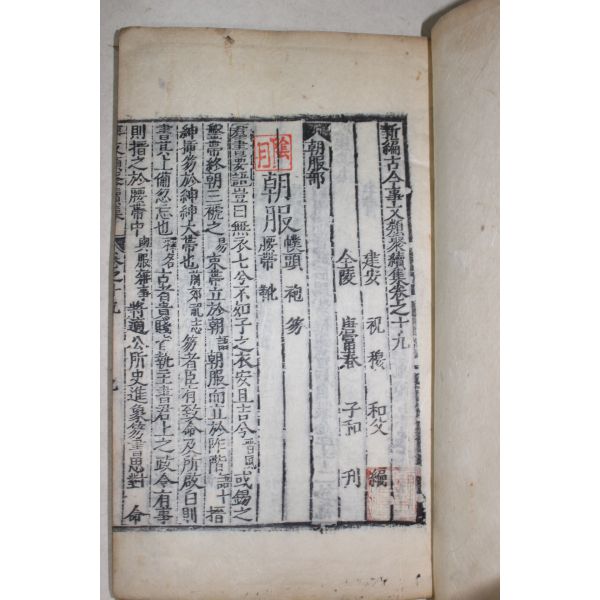 新編古今事文類聚續集卷之十九
建安 祝穆 和父 編
金陵 唐富春 子和 刊
朝服部
朝服 幞頭 袍 笏 腰帶 靴
羣書要語豈曰無衣七兮不如子之衣安且吉兮 晉風 或錫之
鞶帶終朝三禠之 易 束帶立於朝 語 朝服而立於阼階 語十 搢
紳搢笏於紳紳大帶也 前郊祀志 笏者臣有致命及所啟白則
書其上備忽忘也 釋名 古者貴賤皆執笏書君上之政令有事
則搢之於腰帶中 輿服雜事 將適公所史進象笏書思對命